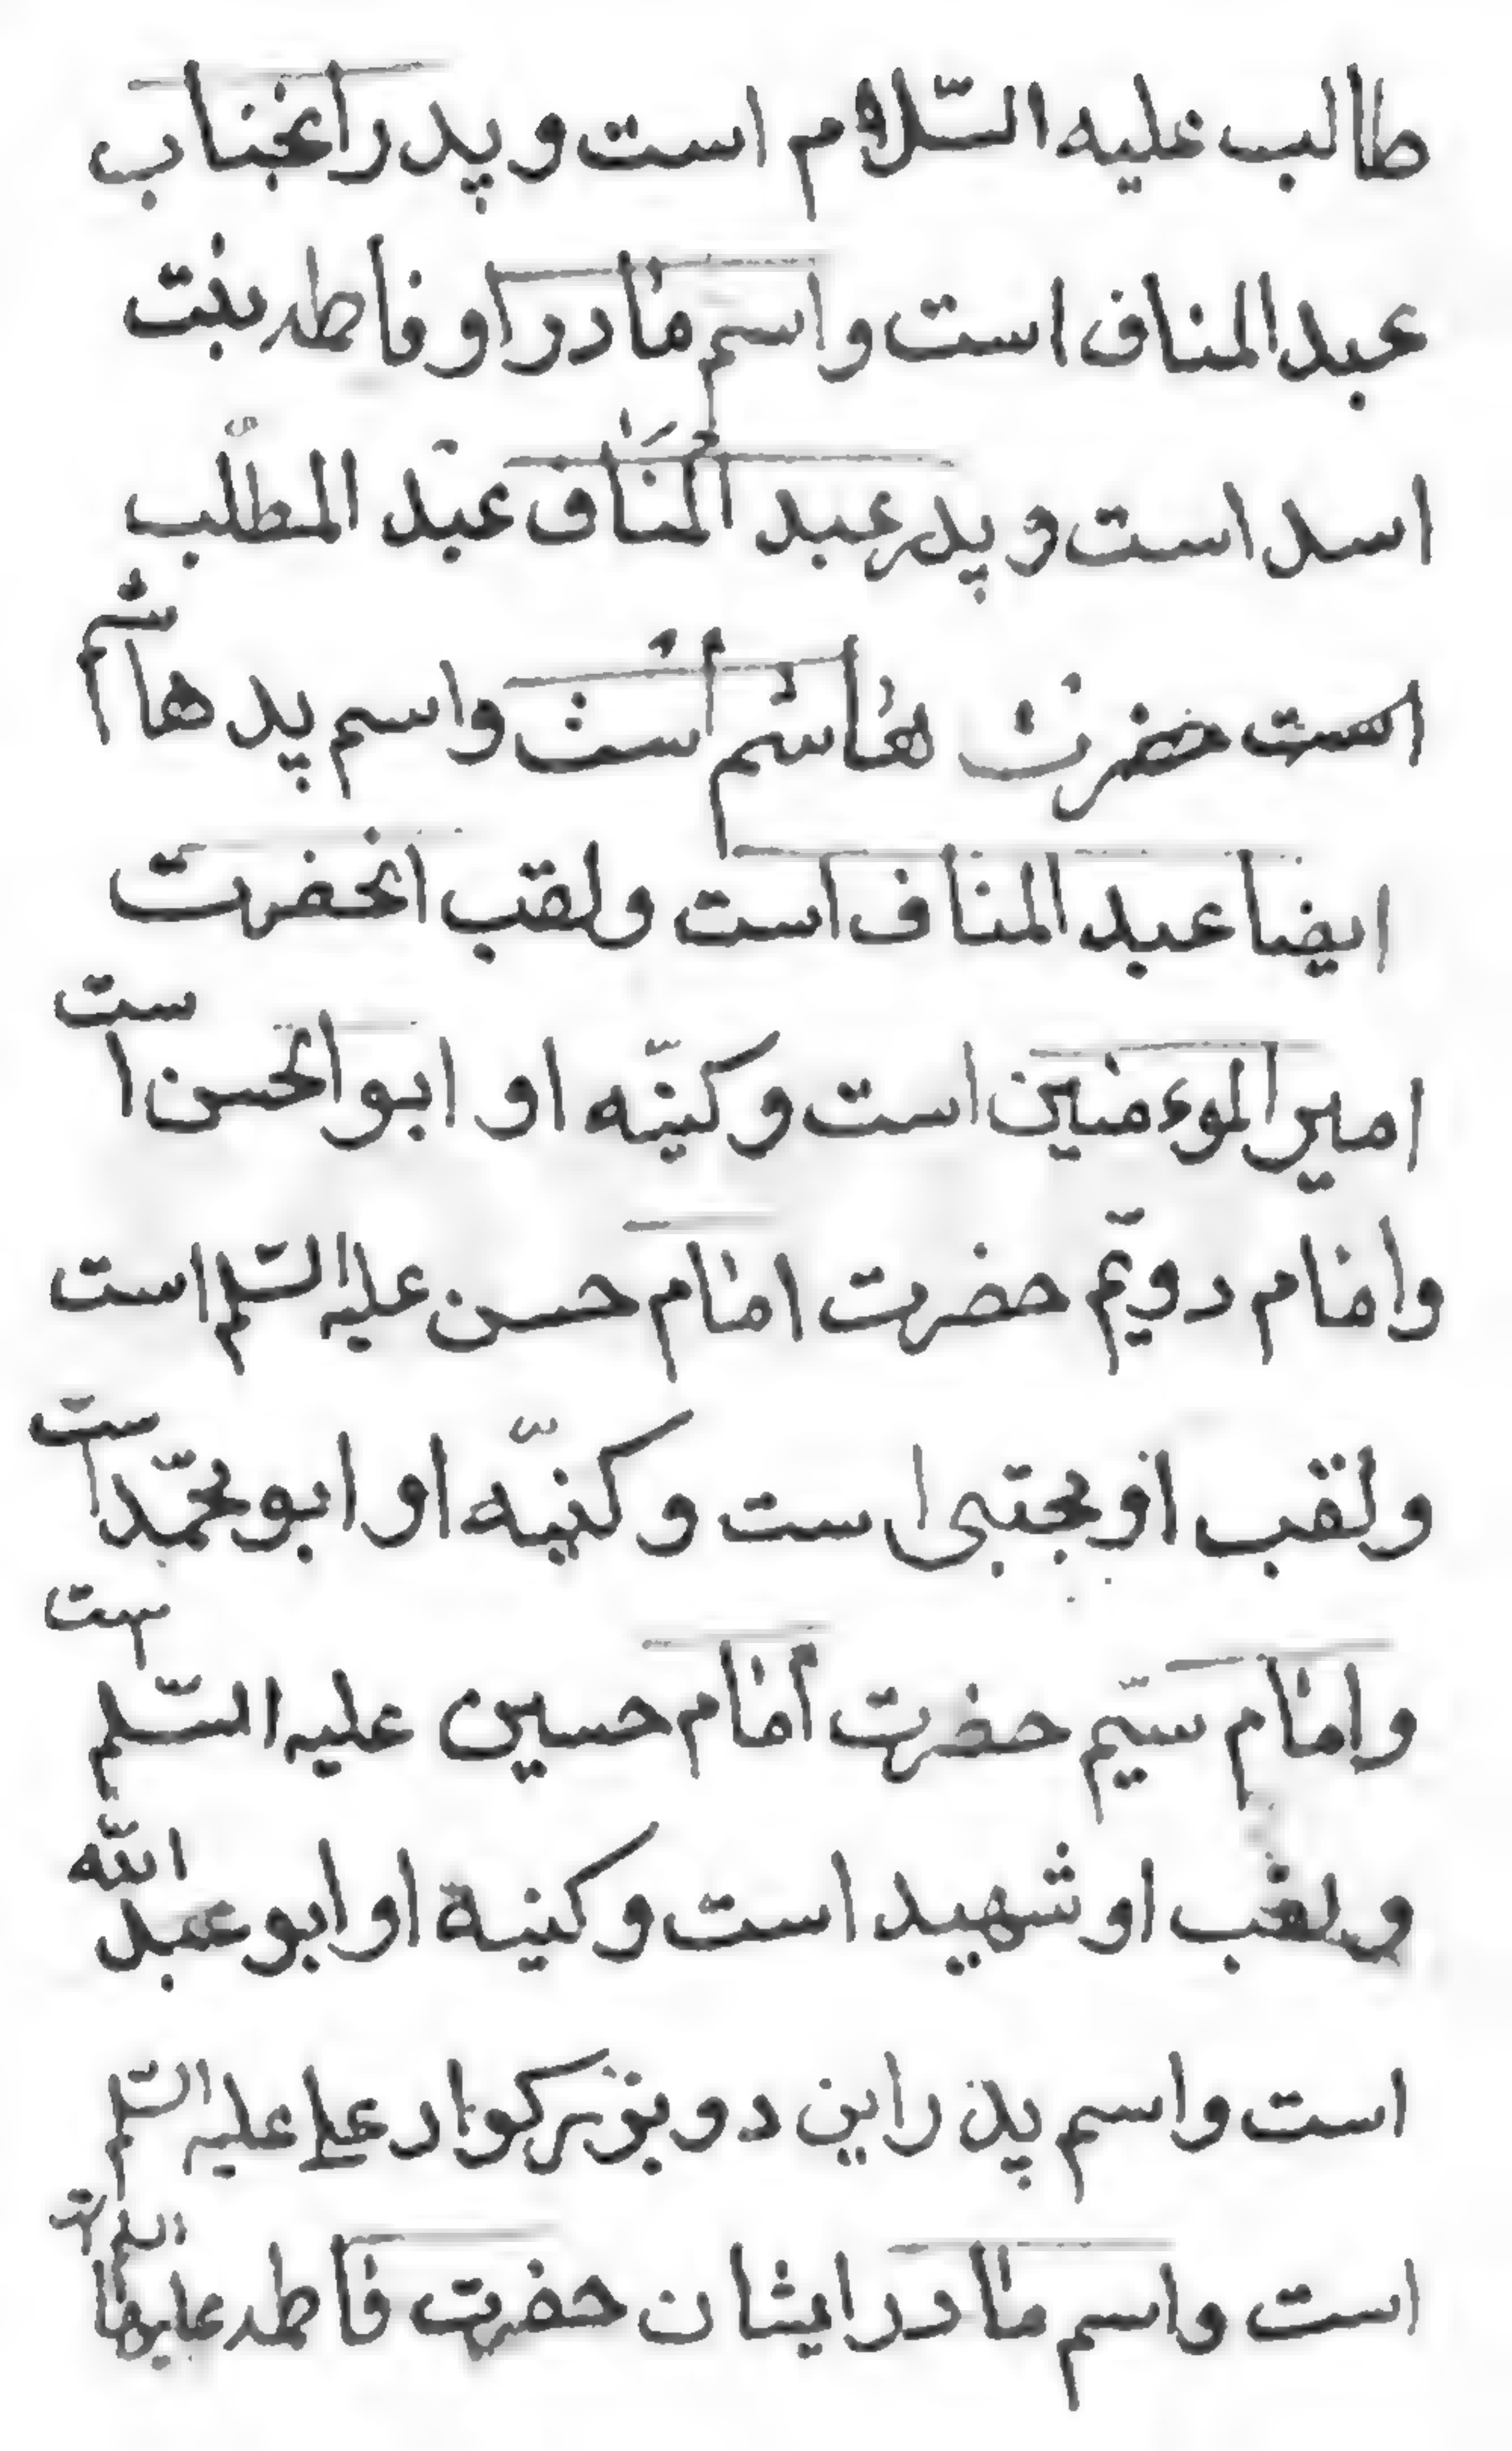 طالب علیه السّلام است و پدر انجناب
عبد المناف است و اسم مادر او فاطمه بنت
اسد است و پدر عبد المناف عبد المطّلب
است حضرت هاشم است و اسم پد هاشم
ایضا عبد المناف است و لقب انحضرت
امیر الموءمنین است و کنیّه او ابو الحسن است
و امام دویّم حضرت امام حسن علیه السّلم است
و لقب او مجتبی است و کنیّه او ابو محمّد است
و امام سیّم حضرت امام حسین علیه السّلم است
و لقب او شهید است و کنیة او ابو عبد الله
است و اسم پدر این دو بزرکوار علی علیه السّلم
است و اسم مادر ایشان حضرت فاطمه علیها السلم است